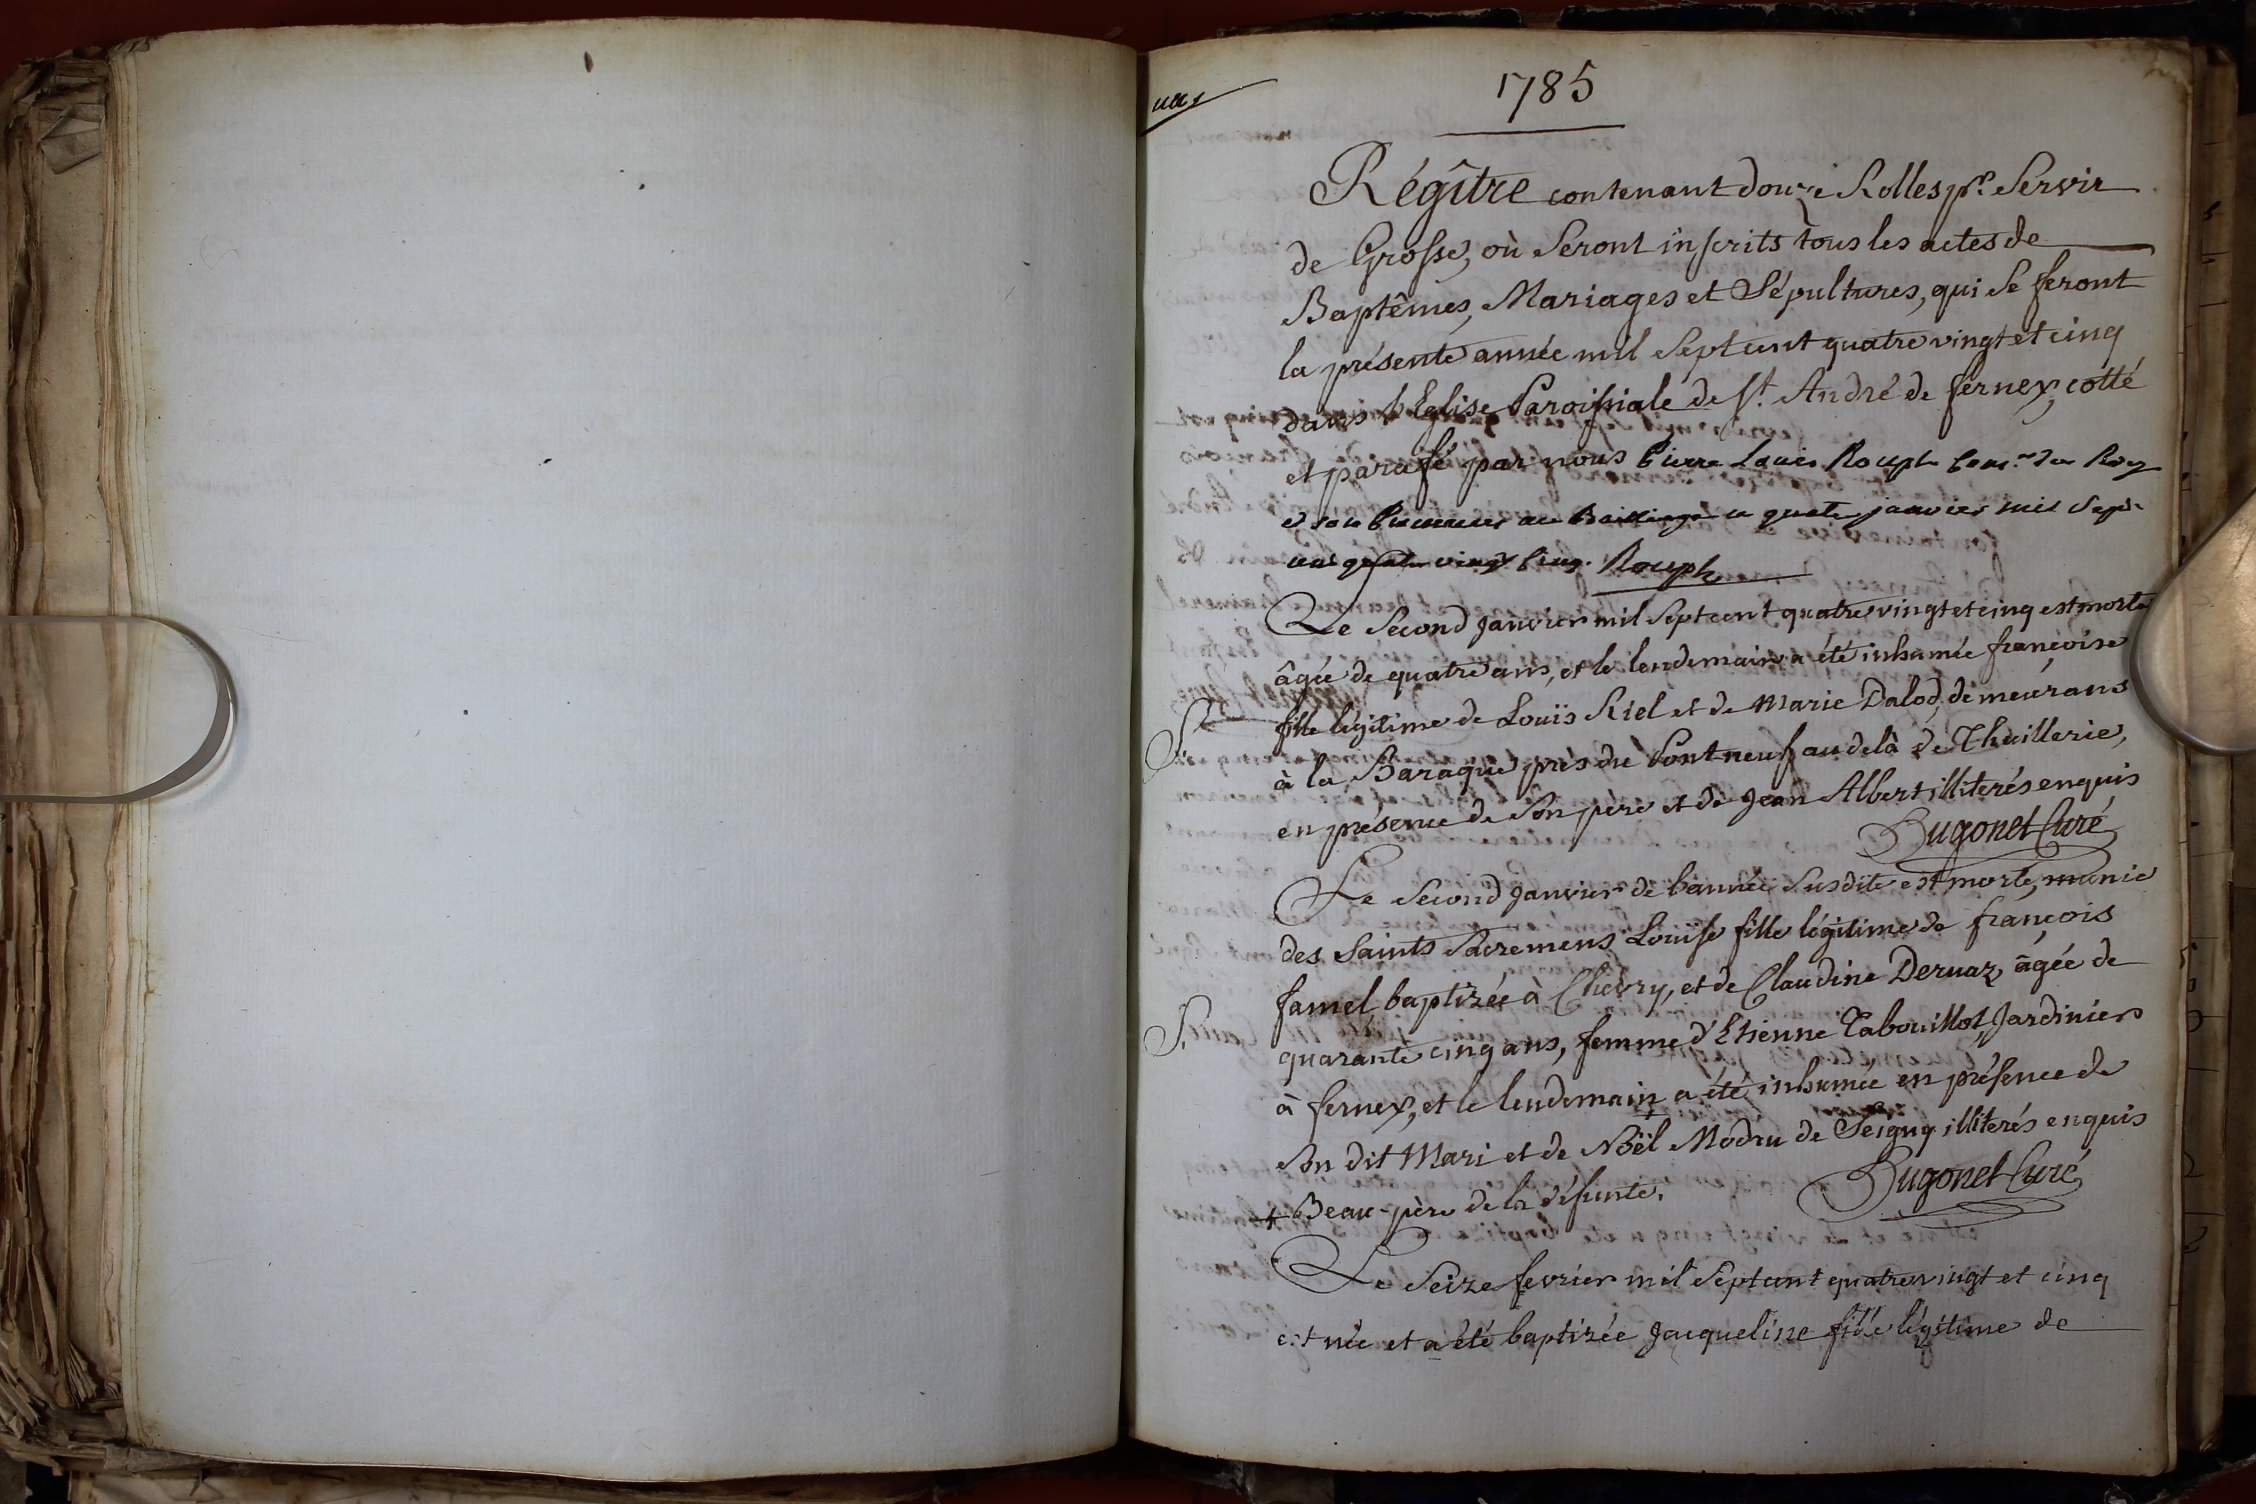 1785
Régître contenant douze Rolles pr. Servir
de Grosse, où Seront inscrits tous les actes de
Baptêmes, Mariages et Sépultures, qui se feront
la présente année mil Septcent quatre vingt et cinq
dans l'Eglise Paroissiale de St. André de ferney, cotté
et parafé par nous Pierre Louis Rouph du Roy
au Bailliage ce quatre janvier mil Sept
cent quatre vingt Cinq. Rouph
Le Second Janvier mil Septcent quatre vingt et cinq est morte
âgée de quatre ans, et le lendemain a été inhumée françoise
S. fille légitime de Louïs Riel et de Marie Dalod, demeurans
à la Baraque près du Pont neuf au delà de Thuillerie,
en présence de Son père et de Jean Albert illiterés enquis
Dugonet Curé
Le Second Janvier de l'année Susdite est morte, munie
des Saints Sacremens Louïse fille légitime de françois
famel baptizée à Chevry, et de Claudine Dervaz, âgée de
S. quarante cinq ans, femme d'Etienne Tabouillot, Jardinier
à ferney, et le lendemain a été inhumée en présence de
Son dit Mari et de Noël Modru de Seigny illiterés enquis
+ Beau-père de la défunte. Dugonet Curé
Le Seize fevrier mil Septcent quatre vingt et cinq
est née et a été baptizée Jacqueline fille légitime de